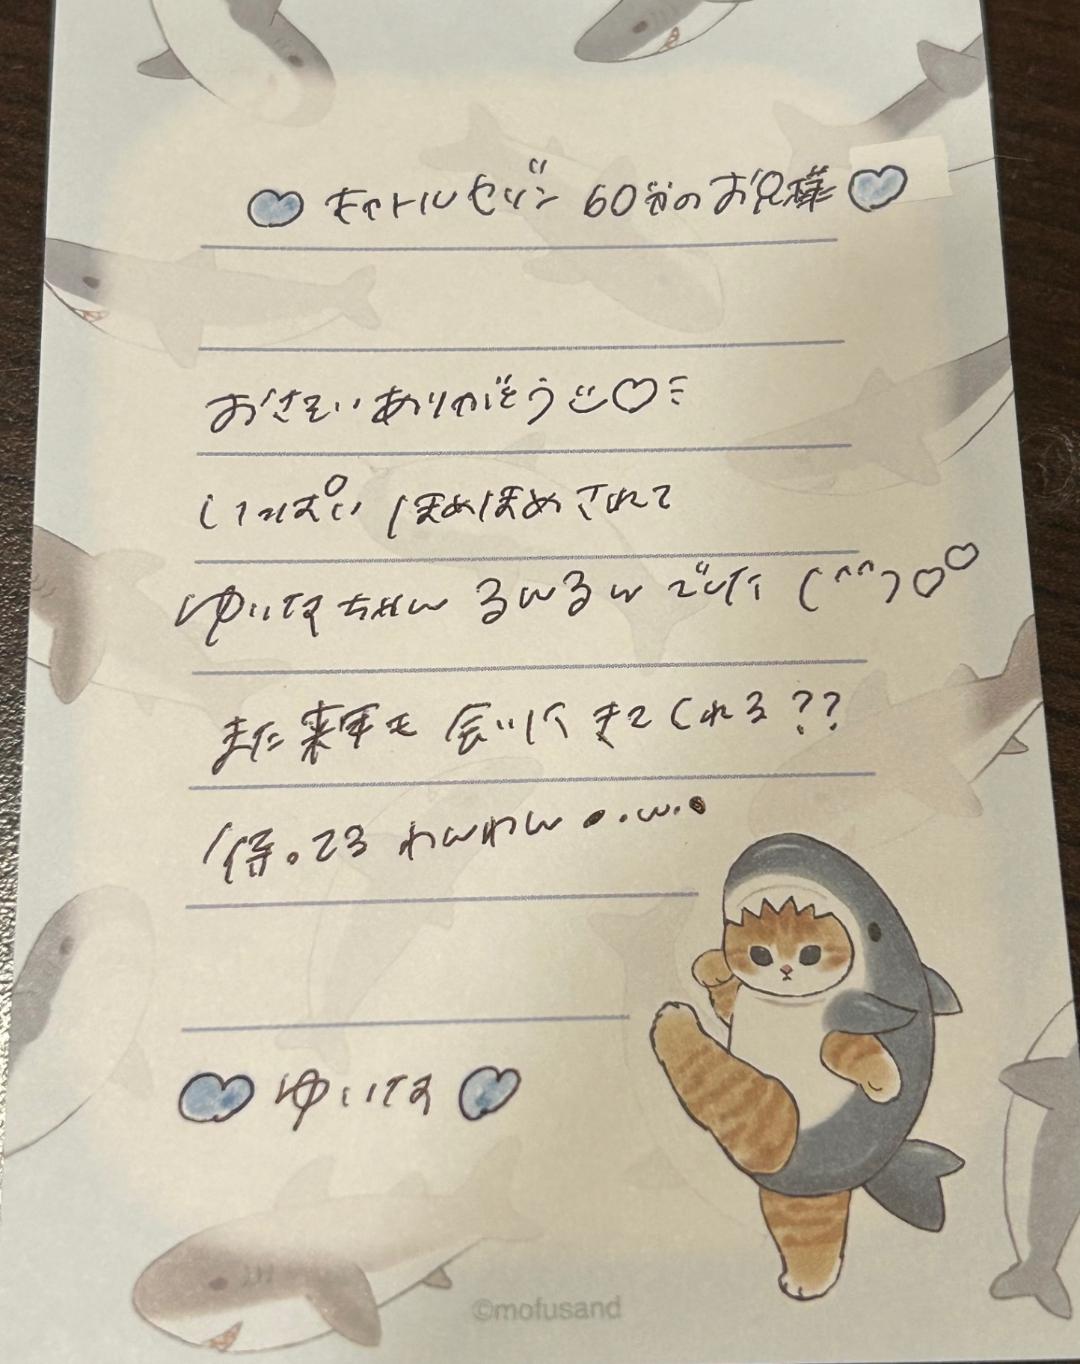 ♡ キャトルセゾン 60分のお兄様 ♡
おさそいありがとう ♡
いっぱい ほめほめされて
ゆいなちゃん るんるん でした (^^) ♡♡
また来年も 会いに きてくれる??
待ってる わんわん •.ω.•
♡ ゆいな ♡
©mofusand